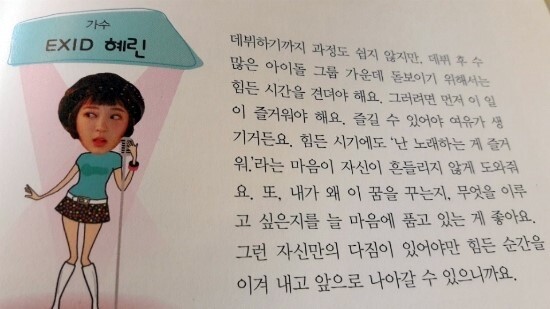 가수
EXID 혜린
데뷔하기까지 과정도 쉽지 않지만, 데뷔 후 수
많은 아이돌 그룹 가운데 돋보이기 위해서는
힘든 시간을 견뎌야 해요. 그러려면 먼저 이 일
이 즐거워야 해요. 즐길 수 있어야 여유가 생
기거든요. 힘든 시기에도 ‘난 노래하는 게 즐거
워.’라는 마음이 자신이 흔들리지 않게 도와줘
요. 또, 내가 왜 이 꿈을 꾸는지, 무엇을 이루
고 싶은지를 늘 마음에 품고 있는 게 좋아요.
그런 자신만의 다짐이 있어야만 힘든 순간을
이겨 내고 앞으로 나아갈 수 있으니까요.